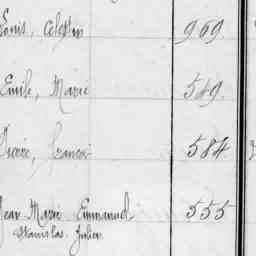 Louis, Celestin 969
Emile, Marie 549.
Pierre, Francois 584.
Jean Marie Emmanuel 555
Stanislas. Julien.